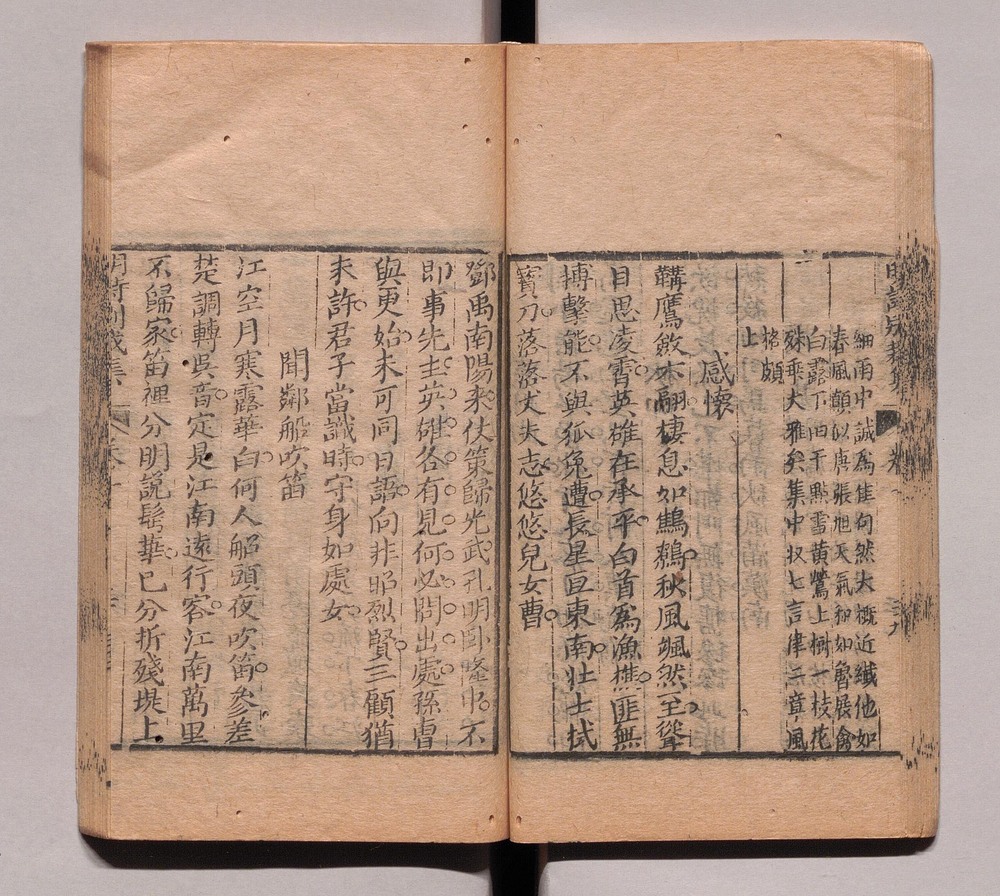 細雨中誠為佳句然大概近纖他如
春風顛似唐張旭天氣和如魯展禽
白露下田千點雪黃鸝上樹一枝花
殊乖大雅矣集中收七言律三章風
格頗
上
感懷
鞲鷹斂六翮棲息如鷦鷯秋風颯然至聳
目思凌霄英雄在承平白首為漁樵匪無
搏擊能不與狐兔遭長星亙東南壯士拭
寶刀落落丈夫志悠悠兒女曹
鄧禹南陽來仗策歸光武孔明臥隆中不
即事先主英雄各有見何必問出處孫曹
與更始未可同日語向非昭烈賢三顧猶
未許君子當識時守身如處女
聞鄰船吹笛
江空月寒露華白何人船頭夜吹笛參差
楚調轉吳音定是江南遠行客江南萬里
不歸家笛裡分明說鬢華已分折殘堤上
明詩別裁集